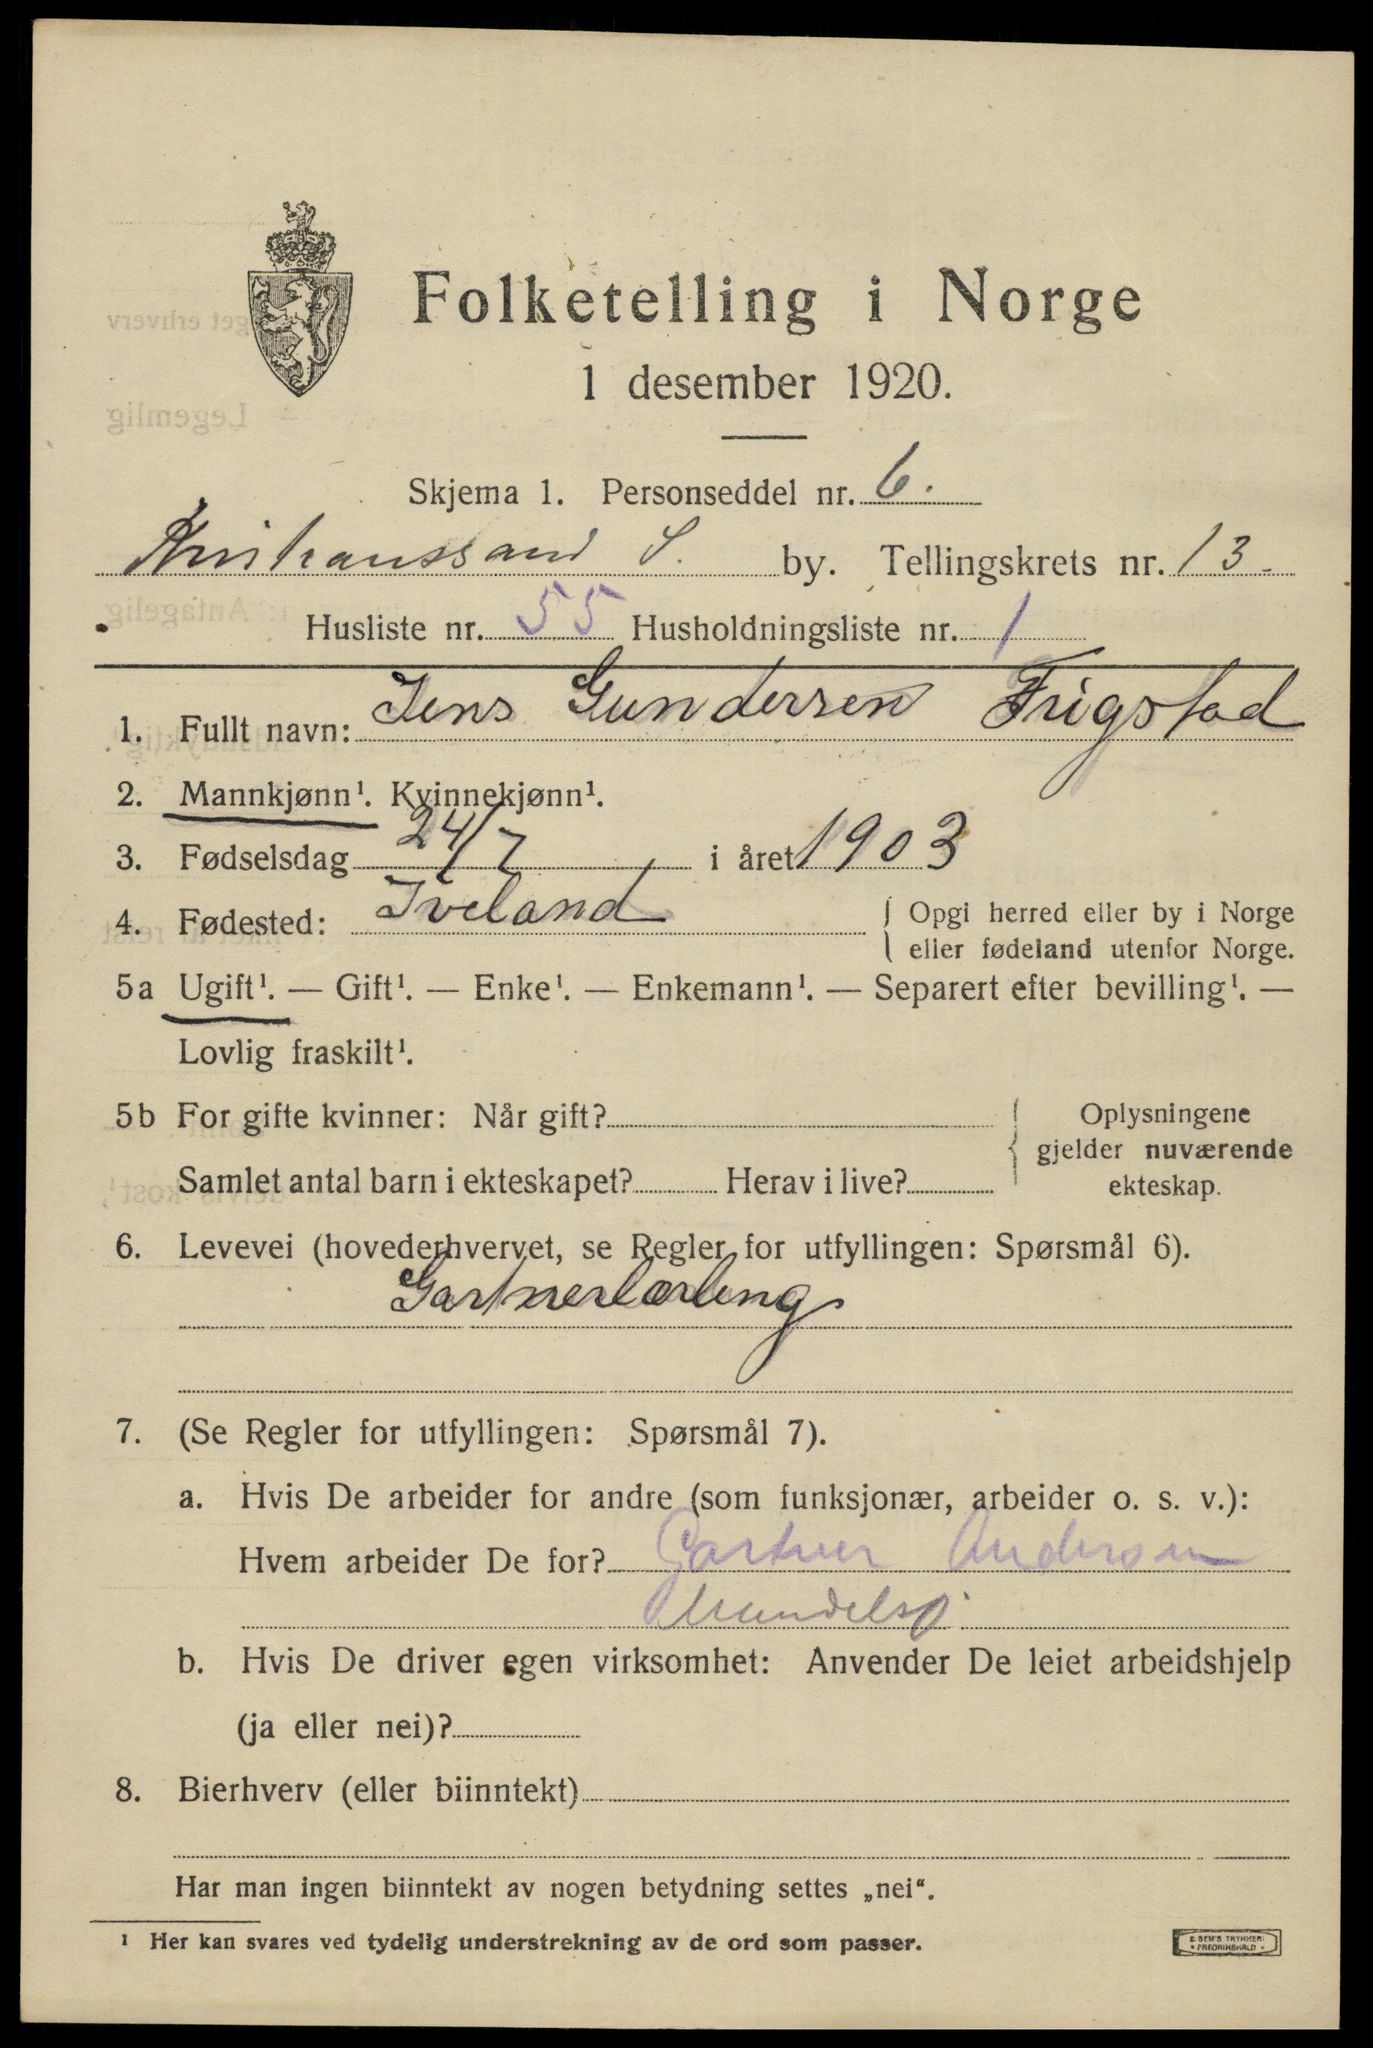 Folketelling i Norge
1 desember 1920.
Skjema 1. Personseddel nr. 6.
Kristianssand S. by. Tellingskrets nr. 13.
Husliste nr. 55 Husholdningsliste nr. 1
1. Fullt navn: Jens Gundersen Frigstad
2. Mannkjønn¹. Kvinnekjønn¹.
3. Fødselsdag 24/7 i året 1903
4. Fødested: Iveland { Opgi herred eller by i Norge
eller fødeland utenfor Norge.
5a Ugift¹. — Gift¹. — Enke¹. — Enkemann¹. — Separert efter bevilling¹. —
Lovlig fraskilt¹.
5b For gifte kvinner: Når gift? Oplysningene
gjelder nuværende
Samlet antal barn i ekteskapet? Herav i live? ekteskap.
6. Levevei (hovederhvervet, se Regler for utfyllingen: Spørsmål 6).
Gartnerlærling
7. (Se Regler for utfyllingen: Spørsmål 7).
a. Hvis De arbeider for andre (som funksjonær, arbeider o. s. v.):
Hvem arbeider De for? Gartner Andersen
b. Hvis De driver egen virksomhet: Anvender De leiet arbeidshjelp
(ja eller nei)?
8. Bierhverv (eller biinntekt)
Har man ingen biinntekt av nogen betydning settes „nei“.
¹ Her kan svares ved tydelig understrekning av de ord som passer.
E. SEM'S TRYKKERI
• FREDRIKSHALD •